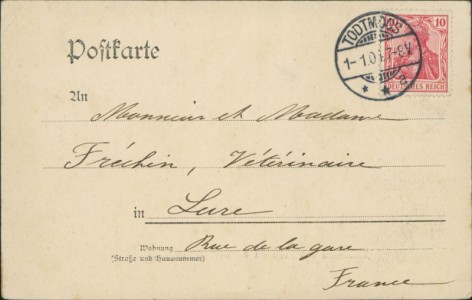 Postkarte
TODTMOOS
1-1.04.7-8V.
10
DEUTSCHES REICH
An Monsieur et Madame
Fréchin, Vétérinaire
in Lure
Wohnung Rue de la gare
(Straße und Hausnummer)
France